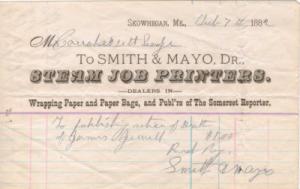 SKOWHEGAN, ME., Feb 7th 1889
M
To SMITH & MAYO, DR.,
STEAM JOB PRINTERS.
—DEALERS IN—
Wrapping Paper and Paper Bags, and Publ'rs of The Somerset Reporter.
To publishing notice of Death
of James
Rec'd Pay.
Smith & Mayo